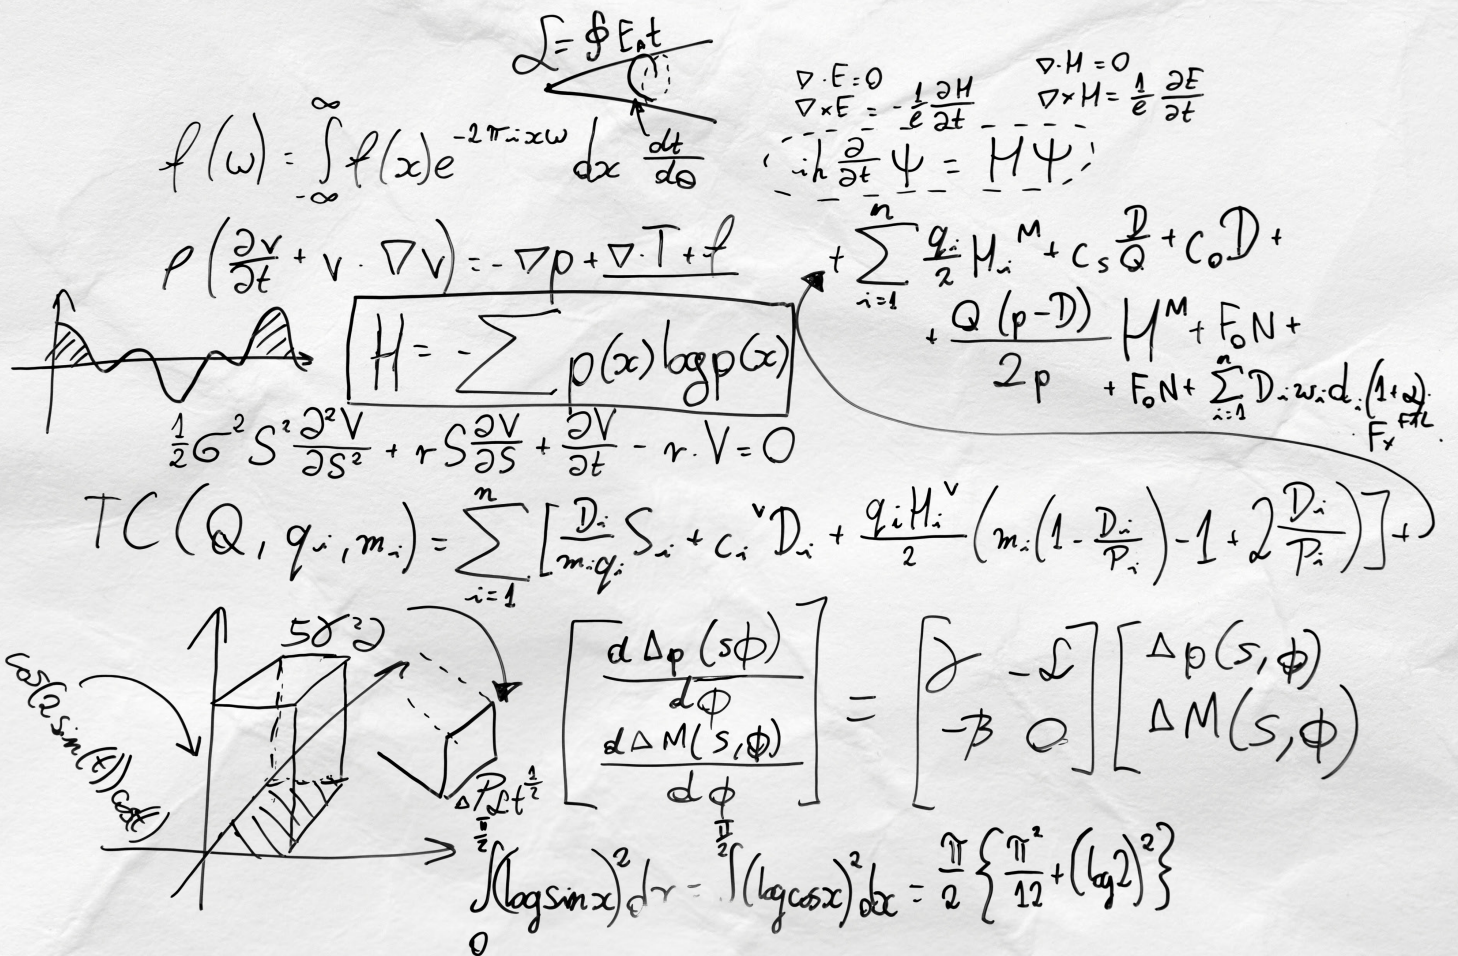 ℒ = ∮ E₀t
∇·E = 0
∇×E = -1/e ∂H/∂t
∇·H = 0
∇×H = 1/e ∂E/∂t
f(ω) = ∫_{-∞}^{∞} f(x)e^{-2πixω} dx
dt/dθ
iħ ∂/∂t Ψ = HΨ
ρ(∂v/∂t + v·∇v) = -∇p + ∇·T + f
+ ∑_{i=1}^{n} q_i/2 H_i^M + c_s D/Q + c_o D +
+ Q(p-D)/2p H^M + F_o N +
+ F_o N + ∑_{i=1}^{n} D_i w_i d_i (1+α)
F_x
H = -∑ p(x) log p(x)
1/2 σ² S² ∂²V/∂S² + rS ∂V/∂S + ∂V/∂t - r·V = 0
TC(Q, q_i, m_i) = ∑_{i=1}^{n} [D_i/(m_i q_i) S_i + c_i^v D_i + q_i H_i^v/2 (m_i(1 - D_i/P_i) - 1 + 2 D_i/P_i)] +
5γ²∂
cos(2sin(x))cos(t)
ΔPℒt^{1/2}
[dΔp(sϕ)/dϕ ; dΔM(s,ϕ)/dϕ] = [γ -ℒ ; -β 0] [Δp(s,ϕ) ; ΔM(s,ϕ)]
∫_0^{π/2} (log sin x)² dx = ∫^{π/2} (log cos x)² dx = π/2 {π²/12 + (log 2)²}